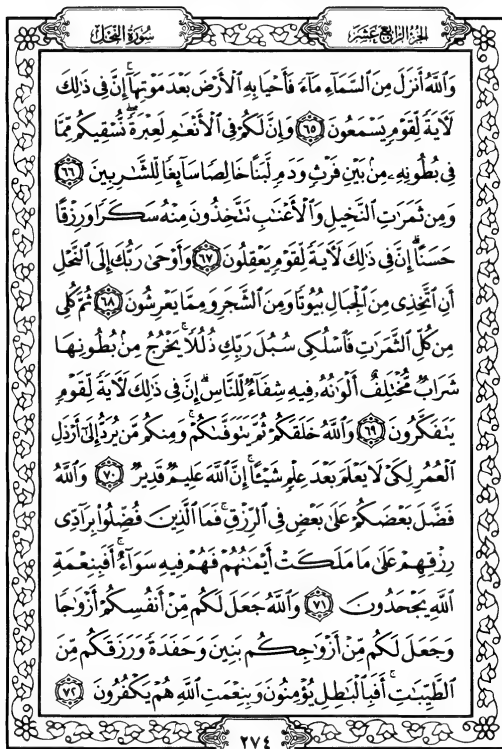 سُورَةُ النَّحْلِ
الجُزْءُ الرَّابِعَ عَشَرَ
وَاللَّهُ أَنزَلَ مِنَ السَّمَاءِ مَاءً فَأَحْيَا بِهِ الْأَرْضَ بَعْدَ مَوْتِهَا ۚ إِنَّ فِي ذَٰلِكَ
لَآيَةً لِّقَوْمٍ يَسْمَعُونَ ﴿٦٥﴾ وَإِنَّ لَكُمْ فِي الْأَنْعَٰمِ لَعِبْرَةً ۖ نُّسْقِيكُم مِّمَّا
فِي بُطُونِهِۦ مِنۢ بَيْنِ فَرْثٍ وَدَمٍ لَّبَنًا خَالِصًا سَآئِغًا لِّلشَّٰرِبِينَ ﴿٦٦﴾
وَمِن ثَمَرَٰتِ النَّخِيلِ وَالْأَعْنَٰبِ تَتَّخِذُونَ مِنْهُ سَكَرًا وَرِزْقًا
حَسَنًا ۗ إِنَّ فِي ذَٰلِكَ لَآيَةً لِّقَوْمٍ يَعْقِلُونَ ﴿٦٧﴾ وَأَوْحَىٰ رَبُّكَ إِلَى النَّحْلِ
أَنِ اتَّخِذِي مِنَ الْجِبَالِ بُيُوتًا وَمِنَ الشَّجَرِ وَمِمَّا يَعْرِشُونَ ﴿٦٨﴾ ثُمَّ كُلِي
مِن كُلِّ الثَّمَرَٰتِ فَاسْلُكِي سُبُلَ رَبِّكِ ذُلُلًا ۚ يَخْرُجُ مِنۢ بُطُونِهَا
شَرَابٌ مُّخْتَلِفٌ أَلْوَٰنُهُۥ فِيهِ شِفَآءٌ لِّلنَّاسِ ۗ إِنَّ فِي ذَٰلِكَ لَآيَةً لِّقَوْمٍ
يَتَفَكَّرُونَ ﴿٦٩﴾ وَاللَّهُ خَلَقَكُمْ ثُمَّ يَتَوَفَّىٰكُمْ ۚ وَمِنكُم مَّن يُرَدُّ إِلَىٰٓ أَرْذَلِ
الْعُمُرِ لِكَيْ لَا يَعْلَمَ بَعْدَ عِلْمٍ شَيْـًٔا ۚ إِنَّ اللَّهَ عَلِيمٌ قَدِيرٌ ﴿٧٠﴾ وَاللَّهُ
فَضَّلَ بَعْضَكُمْ عَلَىٰ بَعْضٍ فِي الرِّزْقِ ۚ فَمَا الَّذِينَ فُضِّلُوا بِرَآدِّي
رِزْقِهِمْ عَلَىٰ مَا مَلَكَتْ أَيْمَٰنُهُمْ فَهُمْ فِيهِ سَوَآءٌ ۚ أَفَبِنِعْمَةِ
اللَّهِ يَجْحَدُونَ ﴿٧١﴾ وَاللَّهُ جَعَلَ لَكُم مِّنْ أَنفُسِكُمْ أَزْوَٰجًا
وَجَعَلَ لَكُم مِّنْ أَزْوَٰجِكُم بَنِينَ وَحَفَدَةً وَرَزَقَكُم مِّنَ
الطَّيِّبَٰتِ ۚ أَفَبِالْبَٰطِلِ يُؤْمِنُونَ وَبِنِعْمَتِ اللَّهِ هُمْ يَكْفُرُونَ ﴿٧٢﴾
٢٧٤